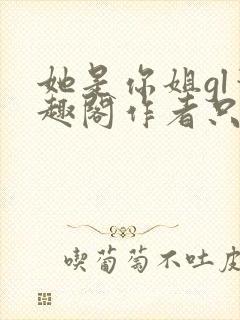 她是你姐gl
趣阁作者只
喫葡萄不吐皮